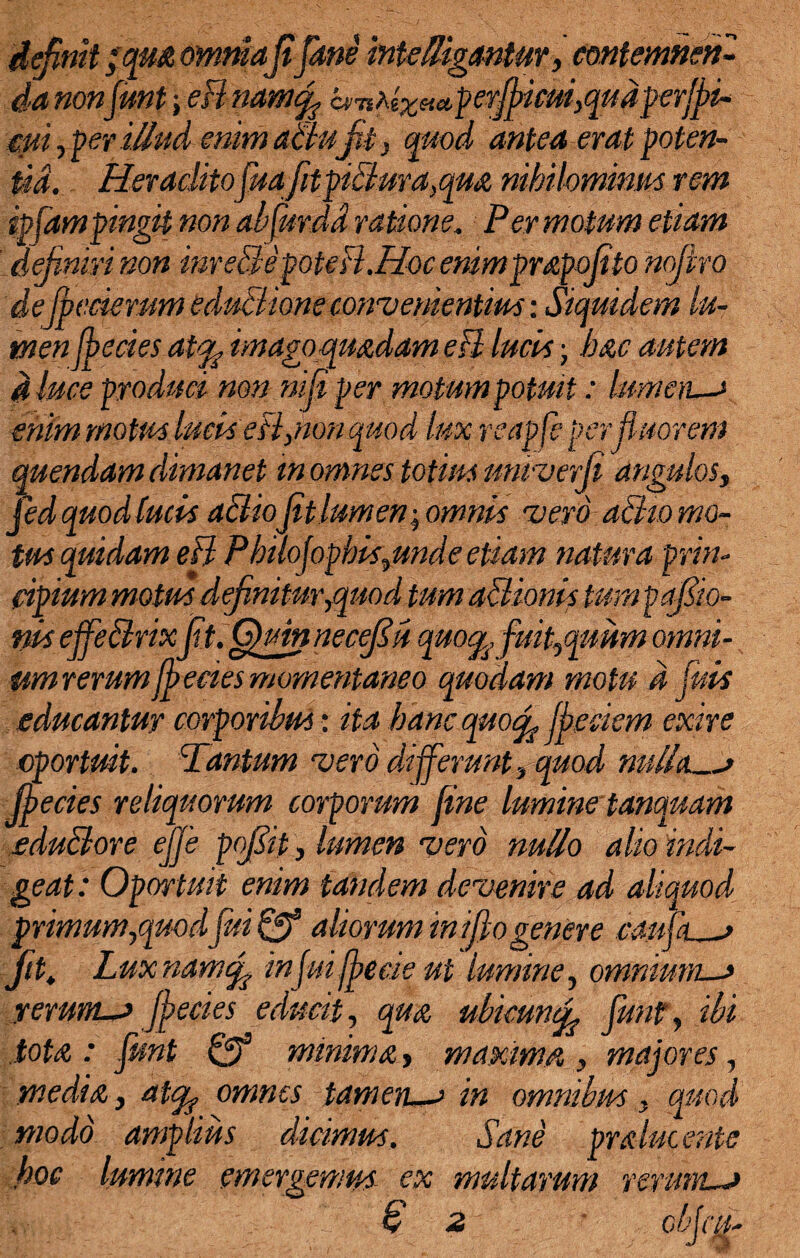 definit; quæ omnia si sanè intelligantur, contemnen-
da non sunt; est namq; ἐντελέχεια perspicui, quà perspi-
cui, per illud enim actu fit, quod antea erat poten-
tiâ. Heraclito sua sit pictura, quæ nihilominus rem
ipsam pingit non absurdâ ratione. Per motum etiam
definiri non inrectè potest. Hoc enim præposito nostro
de specierum eductione convenientius: Siquidem lu-
men species atq; imago quædam est lucis; hæc autem
à luce produci non nisi per motum potuit: lumen
enim motus lucis est, non quod lux reapse per fluorem
quendam dimanet in omnes totius universi angulos,
sed quod lucis actio sit lumen; omnis verò actio mo-
tus quidam est Philosophis, unde etiam natura prin-
cipium motus definitur, quod tum actionis tum passio-
nis effectrix sit. Quin necessū quoq; fuit, quùm omni-
um rerum species momentaneo quodam motu à suis
educantur corporibus: ita hanc quoq; speciem exire
oportuit. Tantum verò differunt, quod nulla
species reliquorum corporum sine lumine tanquam
eductore esse possit, lumen vero nullo alio indi-
geat: Oportuit enim tandem devenire ad aliquod
primum, quod sui & aliorum in isto genere causa
sit. Lux namq; in sui specie ut lumine, omnium
rerum species educit, quæ ubicunq; sunt, ibi
totæ: sunt & minimæ, maximæ, majores,
mediæ, atq; omnes tamen in omnibus, quod
modò amplius dicimus. Sanè prælucente
hoc lumine emergemus ex multarum rerum
E 2 obscu-